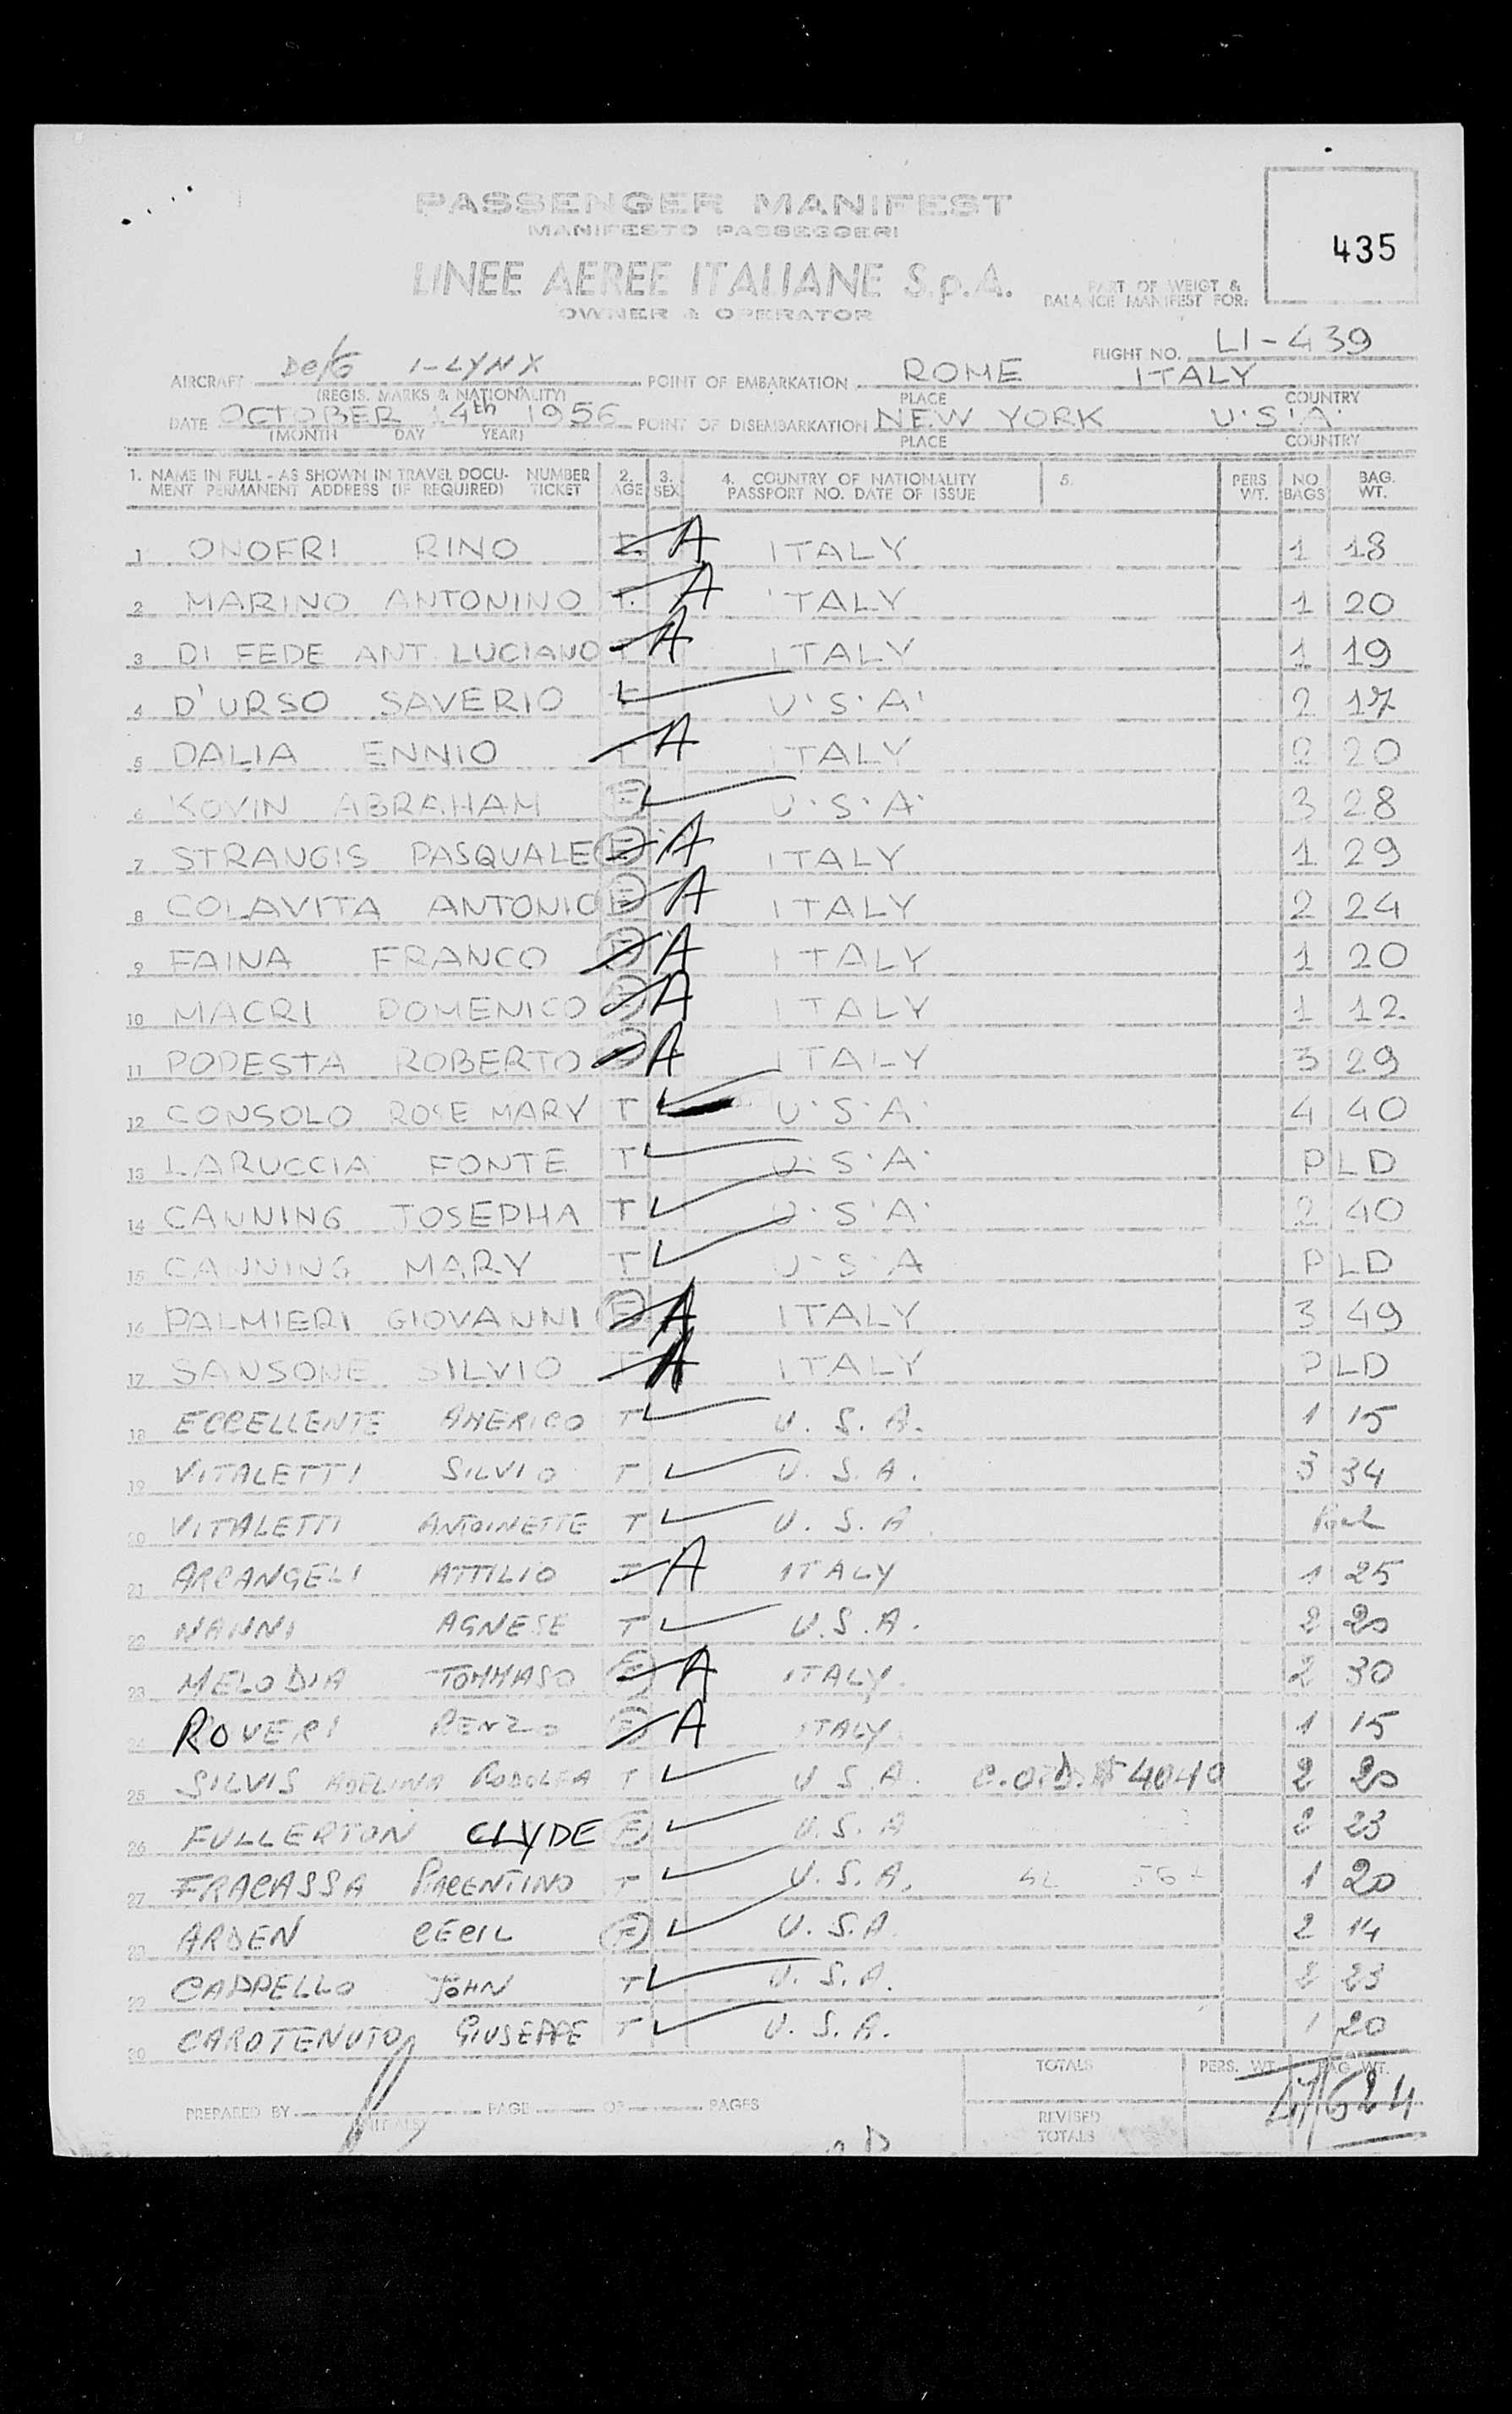 PASSENGER MANIFEST
MANIFESTO PASSEGGERI
435
LINEE AEREE ITALIANE S.p.A.
PART OF WEIGT &
BALANCE MANIFEST FOR:
OWNER & OPERATOR
FLIGHT NO. LI-439
AIRCRAFT I-LYNX POINT OF EMBARKATION ROME ITALY
(REGIS. MARKS & NATIONALITY) PLACE COUNTRY
DATE OCTOBER 14th 1956 POINT OF DISEMBARKATION NEW YORK U.S.A.
(MONTH DAY YEAR) PLACE COUNTRY
1. NAME IN FULL - AS SHOWN IN TRAVEL DOCU- NUMBER 2. 3. 4. COUNTRY OF NATIONALITY 5. PERS NO. BAG.
MENT PERMANENT ADDRESS (IF REQUIRED) TICKET AGE SEX PASSPORT NO. DATE OF ISSUE WT. BAGS WT.
1 ONOFRI RINO A ITALY 1 18
2 MARINO ANTONINO T. A ITALY 1 20
3 DI FEDE ANT. LUCIANO T A ITALY 1 19
4 D'URSO SAVERIO T U.S.A. 2 17
5 DALIA ENNIO T A ITALY 2 20
6 KOVIN ABRAHAM E U.S.A. 3 28
7 STRANGIS PASQUALE E A ITALY 1 29
8 COLAVITA ANTONIO E A ITALY 2 24
9 FAINA FRANCO E A ITALY 1 20
10 MACRI DOMENICO E A ITALY 1 12
11 PODESTA ROBERTO A ITALY 3 29
12 CONSOLO ROSE MARY T U.S.A. 4 40
13 LARUCCIA FONTE T U.S.A. PLD
14 CANNING JOSEPHA T U.S.A. 2 40
15 CANNING MARY T U.S.A PLD
16 PALMIERI GIOVANNI E A ITALY 3 49
17 SANSONE SILVIO T A ITALY PLD
18 ECCELLENTE AMERICO T U.S.A. 1 15
19 VITALETTI SILVIO T U.S.A. 3 34
20 VITALETTI ANTOINETTE T U.S.A
21 ARCANGELI ATTILIO T A ITALY 1 25
22 NANNI AGNESE T U.S.A. 2 20
23 MELODIA TOMMASO E A ITALY. 2 30
24 ROVERI RENZO E A ITALY 1 15
25 SILVIS ADELINA RODOLFA T U.S.A. 2 20
26 FULLERTON CLYDE E U.S.A 2 23
27 FRACASSA PIACENTINO T U.S.A. 1 20
28 ARDEN CECIL E U.S.A 2 14
29 CAPPELLO JOHN T U.S.A. 2 23
30 CAROTENUTO GIUSEPPE T U.S.A. 1 20
TOTALS PERS. WT. BAG WT.
47/624
PREPARED BY PAGE OF PAGES
REVISED
TOTALS